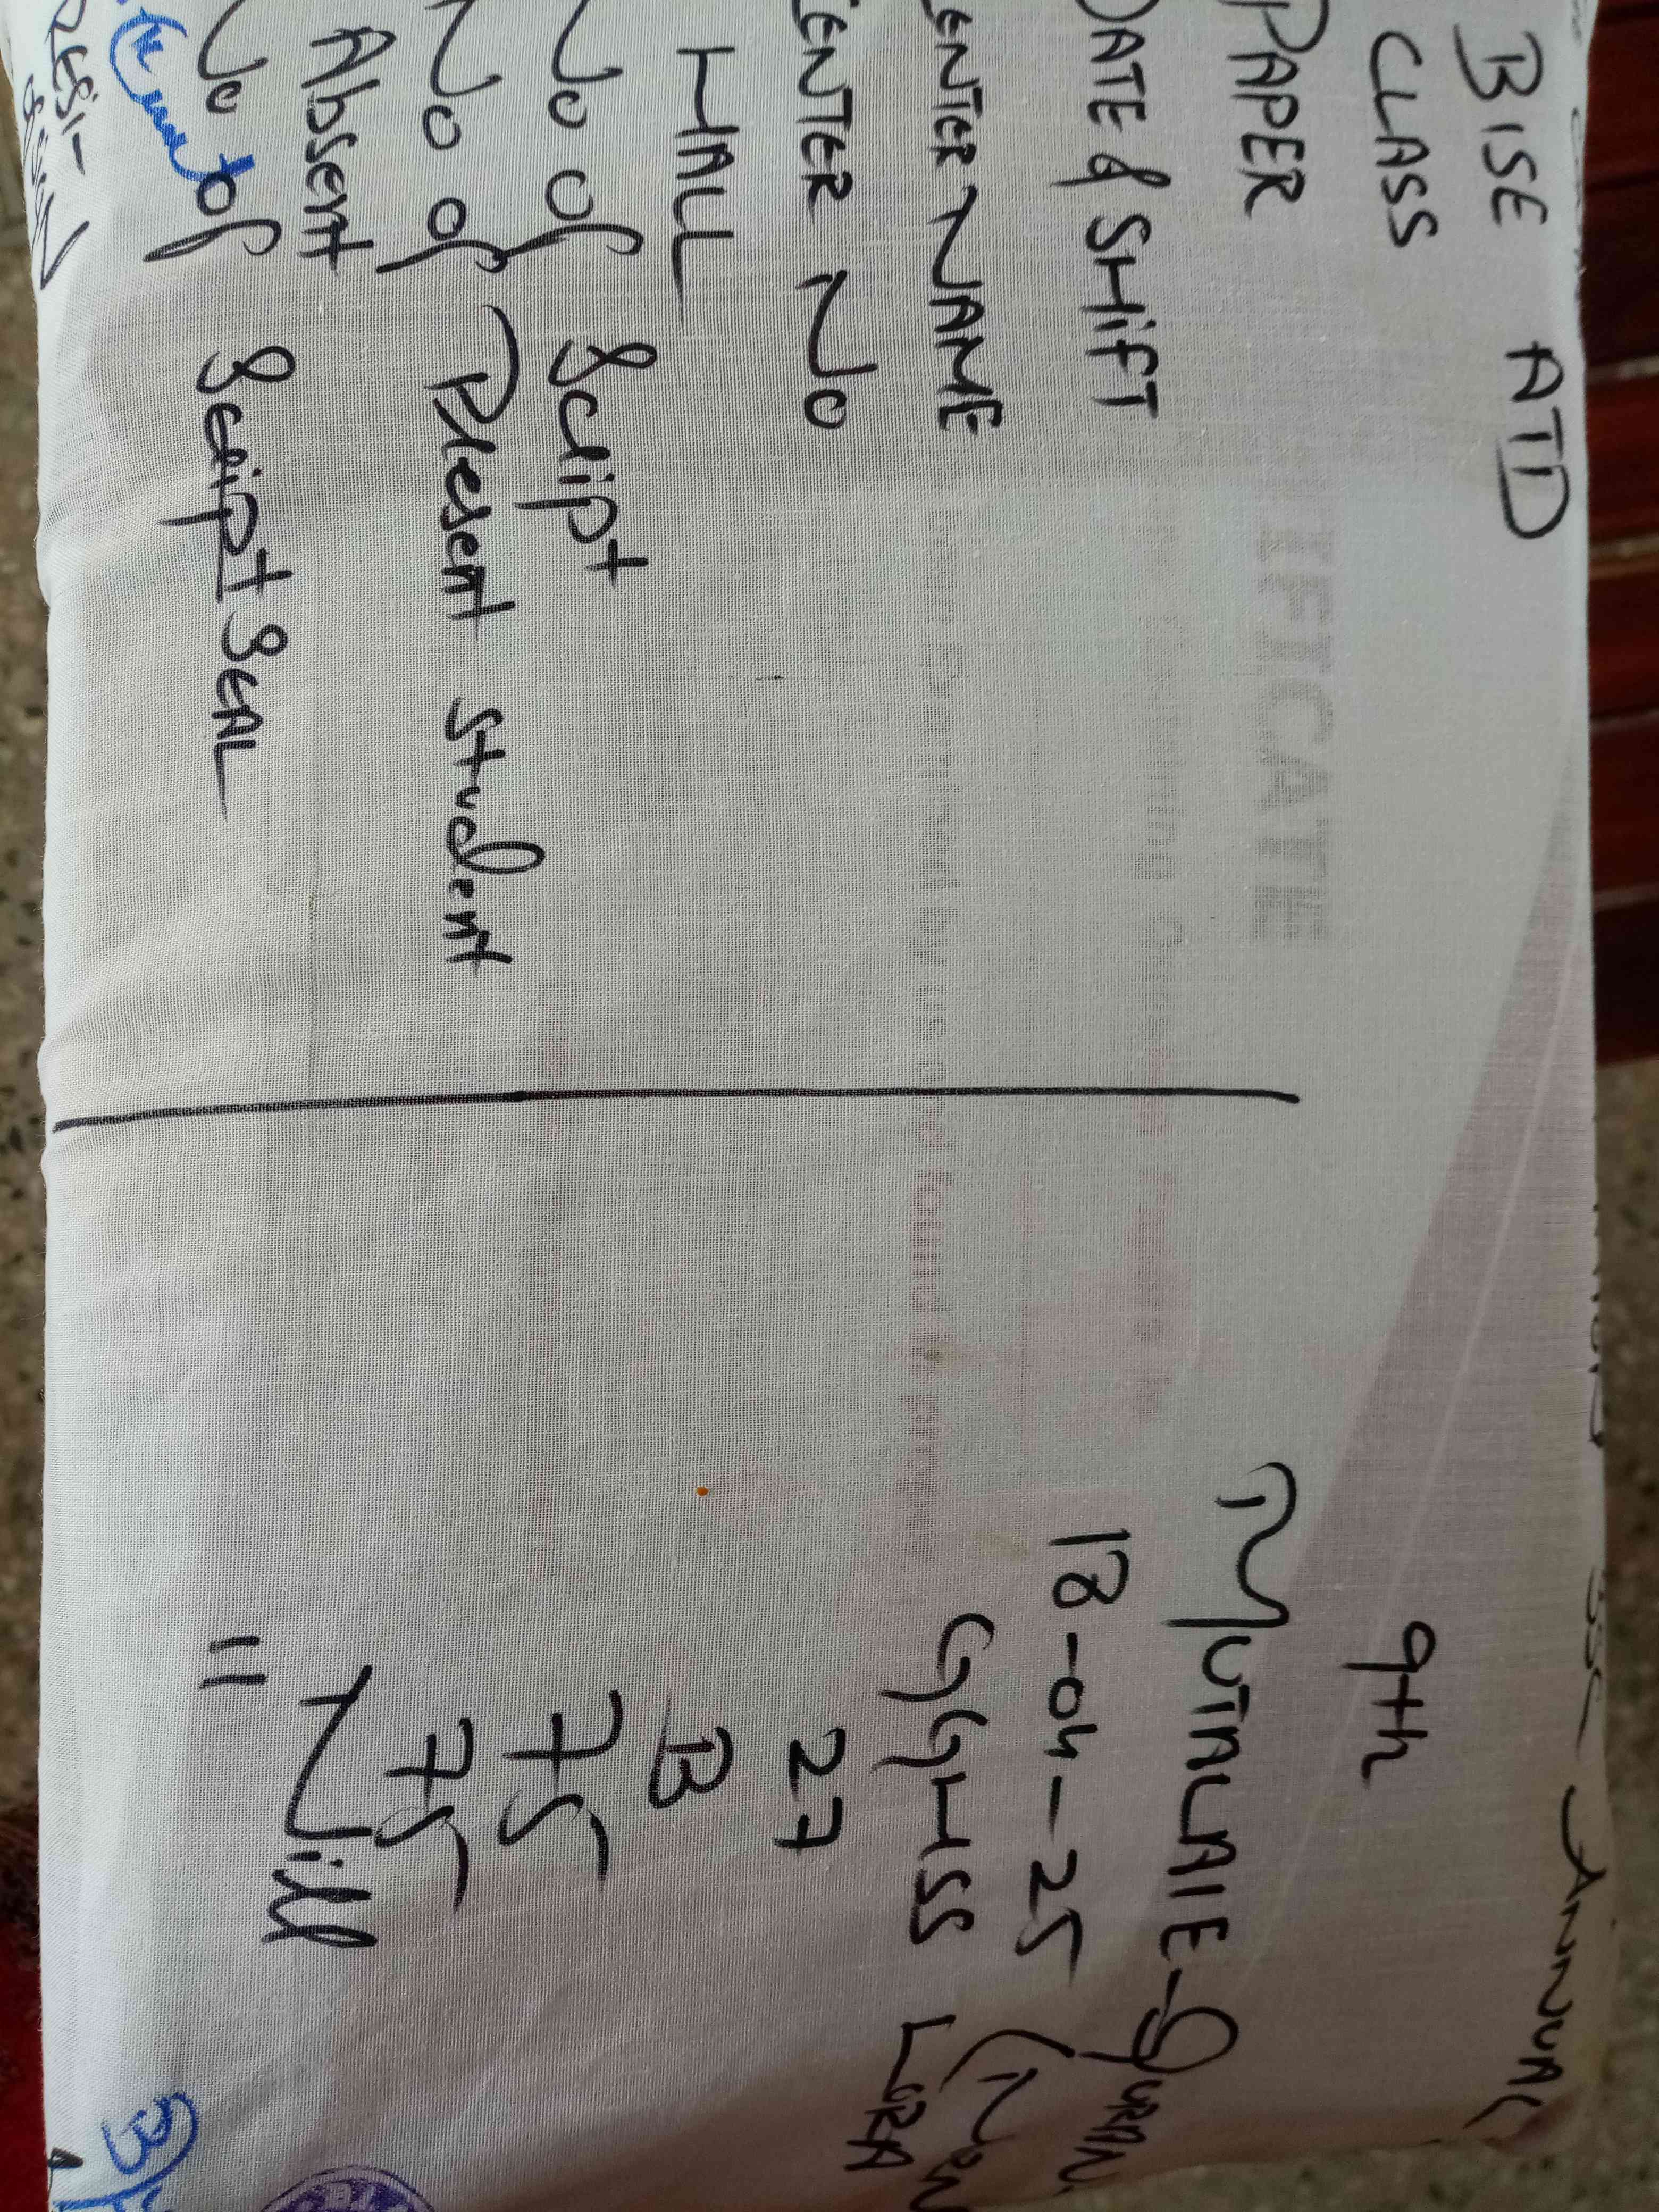 BISE ATD SSC ANNUAL
CLASS 9th
PAPER MUTALAIE-QURAN
DATE & SHIFT 18-04-25 (MORN
ENTER NAME GGHSS LORA
ENTER NO 27
HALL B
No of Script 75
No of Present student 75
Absent Nill
No of Script SEAL 11
IFICATE
found